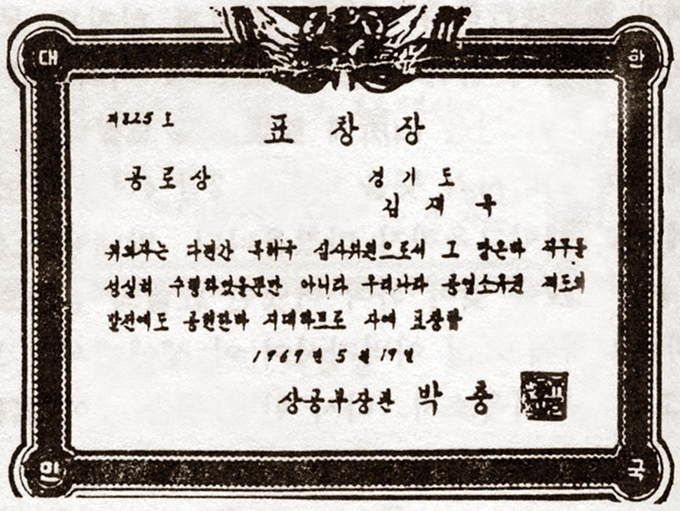 대 한
제825호
표 창 장
공 로 상
경 기 도
김 재 욱
귀하자는 다년간 특허국 심사위원으로서 그 맡은바 직무를
성실히 수행하였을뿐만 아니라 우리나라 공업소유권 제도의
발전에도 공헌한바 지대하므로 자에 표창함
1969 년 5 월 19 일
상공부장관 박 충
민 국